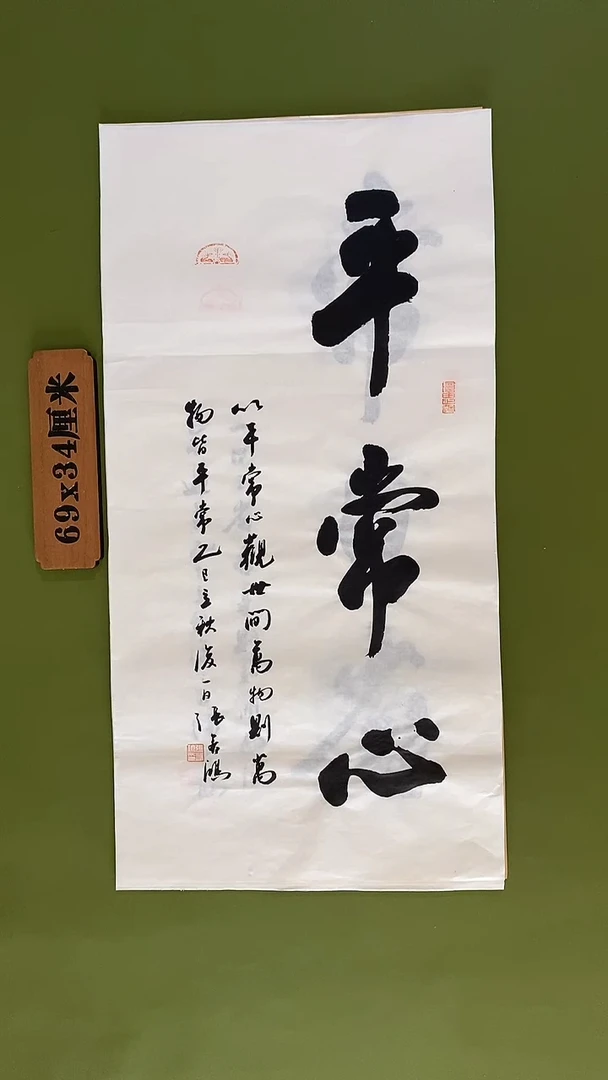 平常心
以平常心觀世間萬物則萬
物皆平常乙巳立秋後一日張
69x34厘米